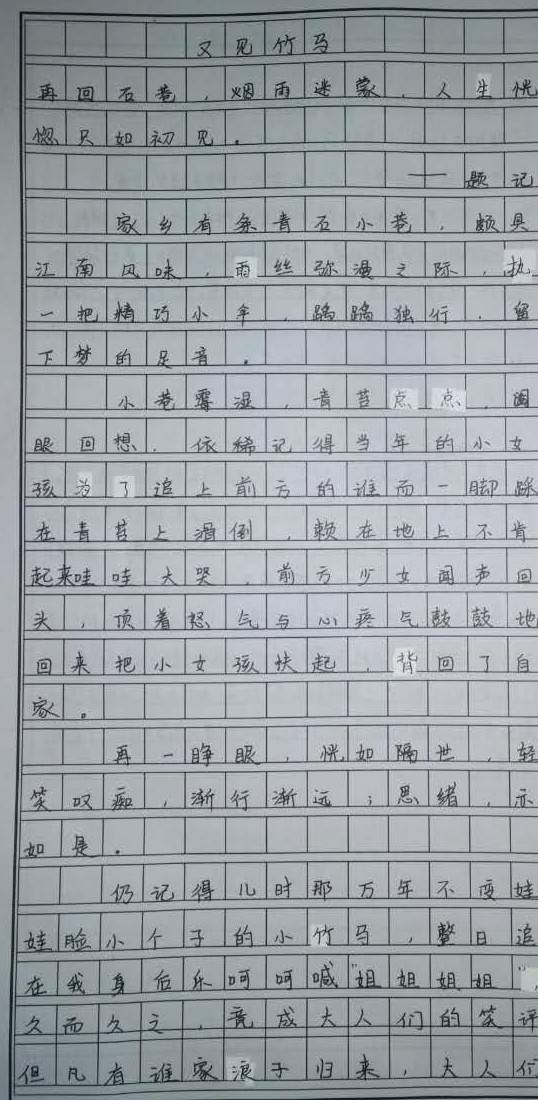 又见竹马
再回石巷，烟雨迷蒙，人生恍
惚只如初见。
——题记
家乡有条青石小巷，颇具
江南风味，雨丝弥漫之际，执
一把精巧小伞，踽踽独行，留
下梦的足音。
小巷霉湿，青苔点点，阖
眼回想，依稀记得当年的小女
孩为了追上前方的谁而一脚踩
在青苔上滑倒，赖在地上不肯
起来哇哇大哭，前方少女闻声回
头，顶着怒气与心疼气鼓鼓地
回来把小女孩扶起，背回了自
家。
再一睁眼，恍如隔世，轻
笑叹痴，渐行渐远；思绪，亦
如是。
仍记得儿时那万年不变娃
娃脸小个子的小竹马，整日追
在我身后乐呵呵喊"姐姐姐姐"，
久而久之，竟成大人们的笑评
但凡有谁家浪子归来，大人们